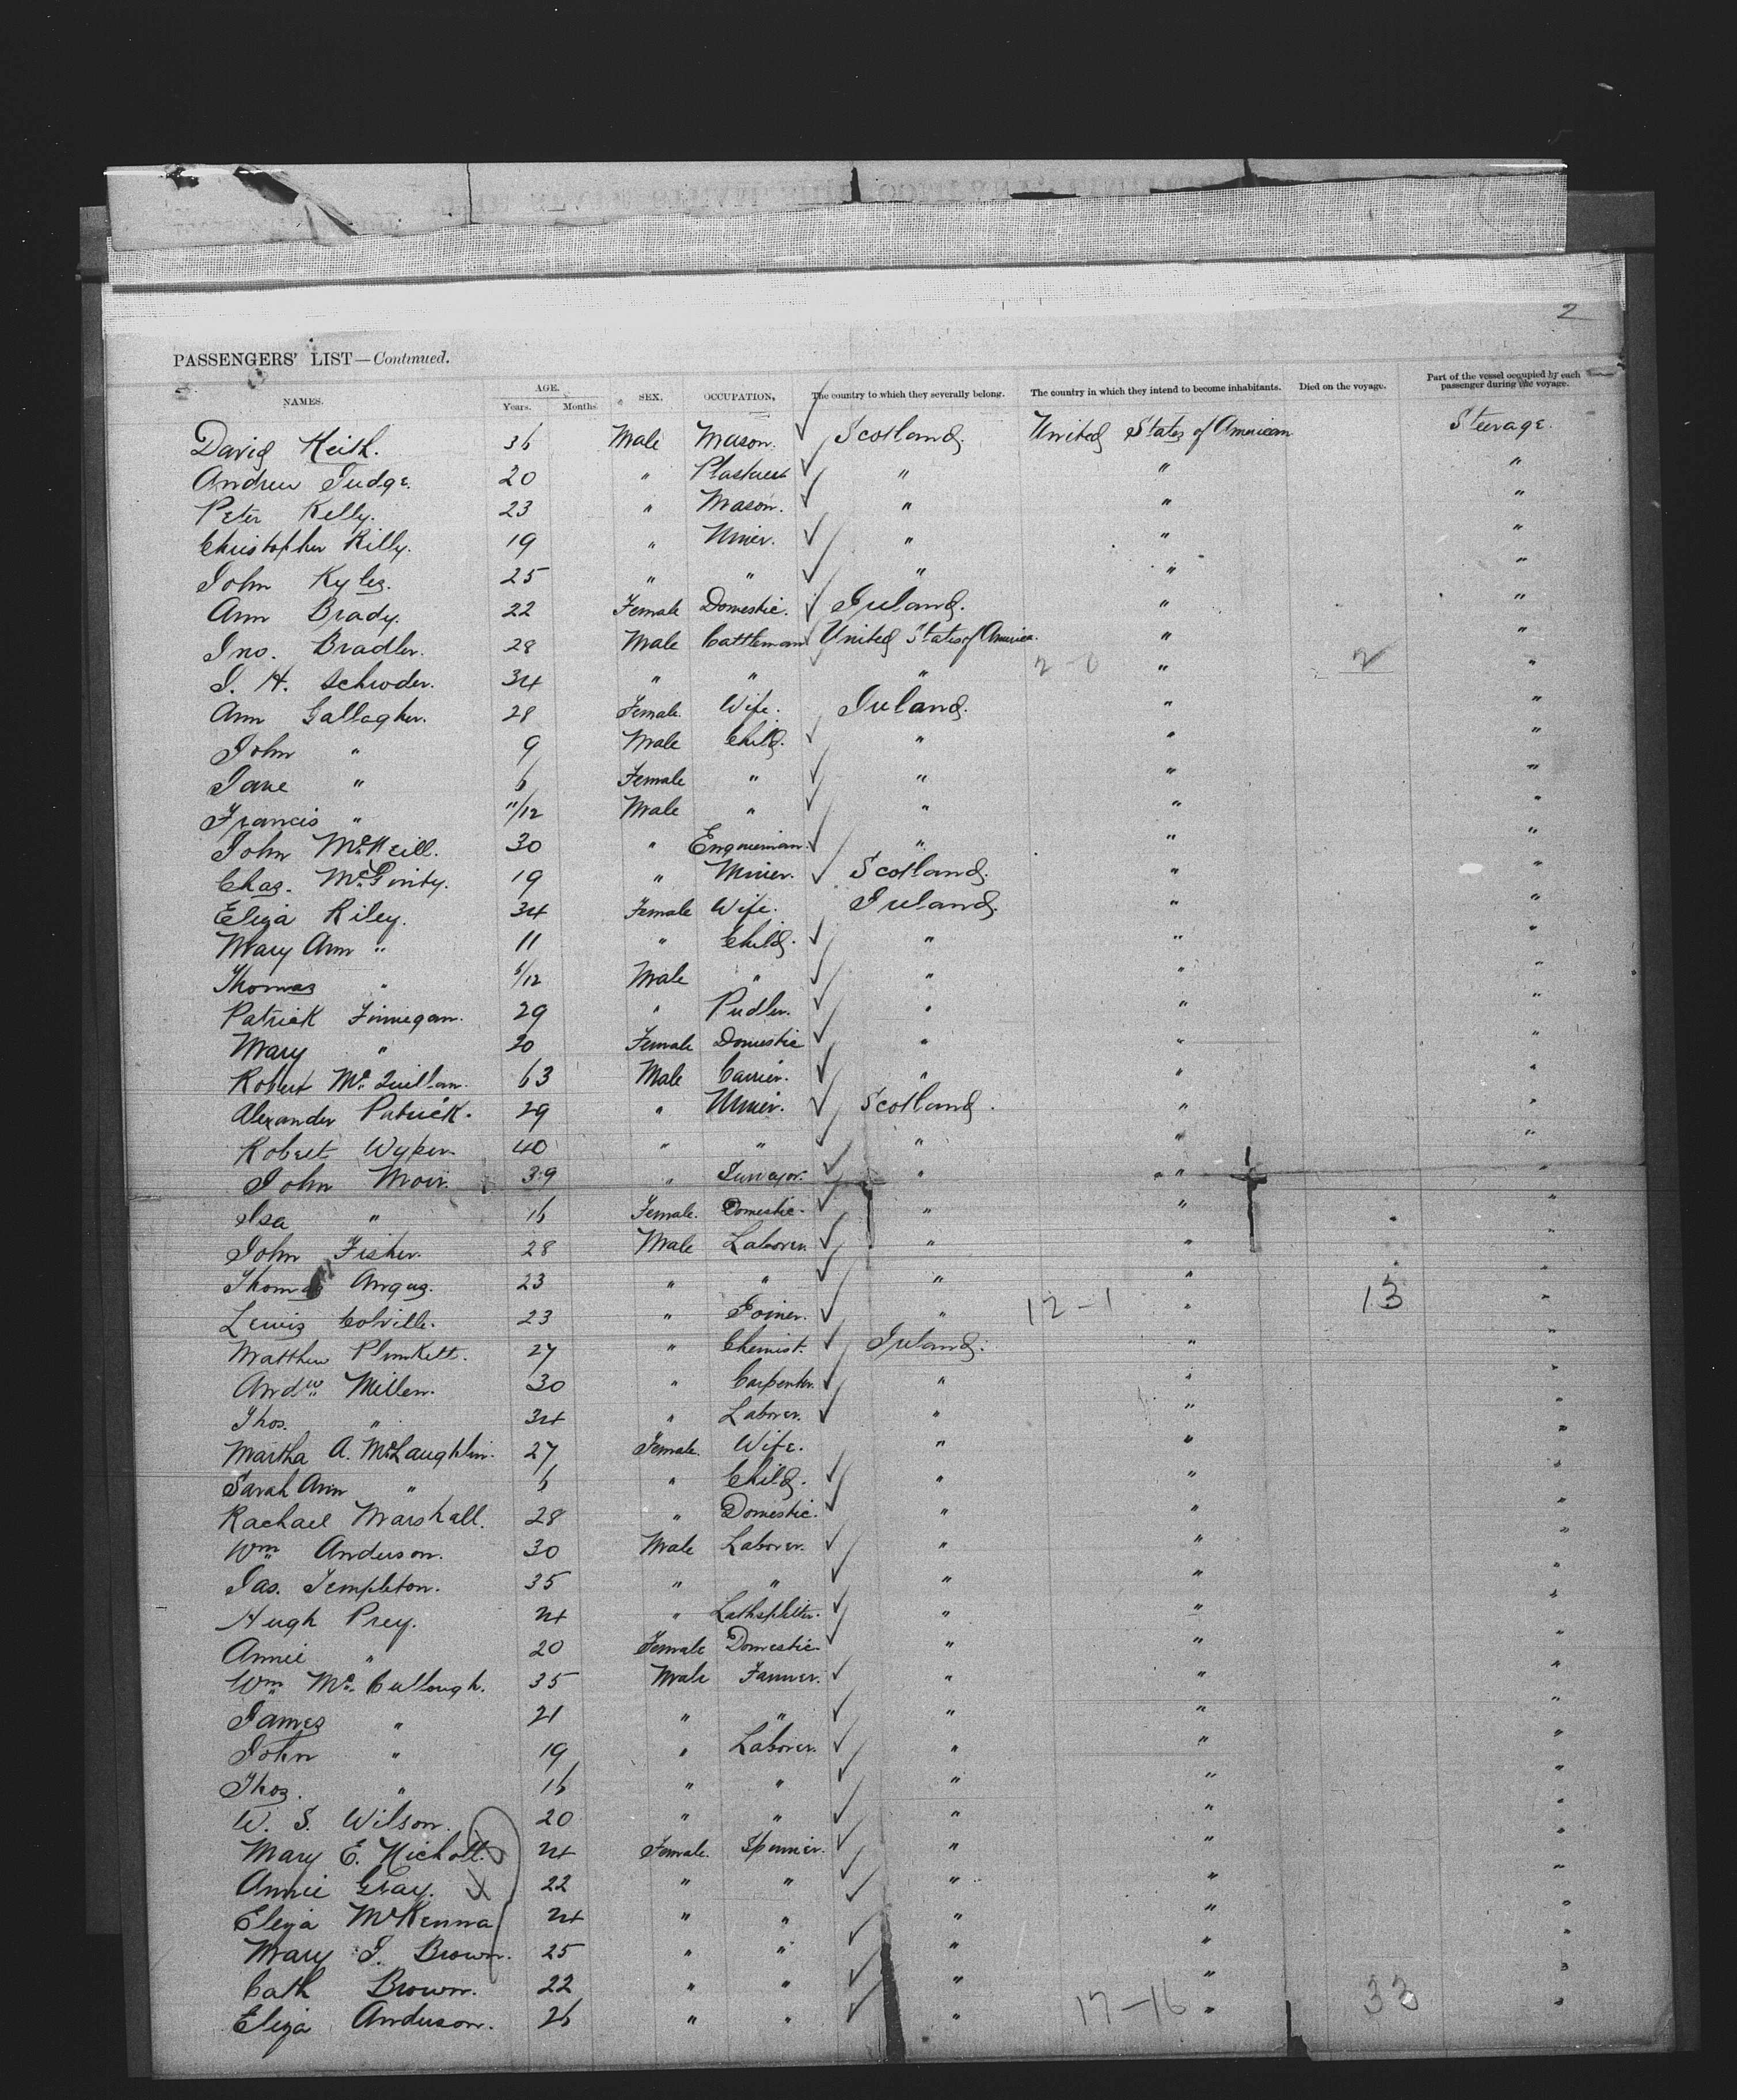 2
PASSENGERS' LIST—Continued.
NAMES. AGE. Years. Months. SEX. OCCUPATION, The country to which they severally belong. The country in which they intend to become inhabitants. Died on the voyage. Part of the vessel occupied by each passenger during the voyage.
David Keith. 36 Male Mason. Scotland. United States of American Steerage.
Andrew Judge. 20 " Plasterer " " "
Peter Kelly. 23 " Mason. " " "
Christopher Killy. 19 " Miner. " " "
John Kyles. 25 " " " " "
Ann Brady. 22 Female Domestic. Ireland. " "
Jno. Bradler. 28 Male Cattleman United States of America. " "
J. H. Schroder. 34 " " " 2-0 " 2 "
Ann Gallagher. 28 Female Wife. Ireland. " "
John " 9 Male Child. " " "
Jane " 6 Female " " " "
Francis " 11/12 Male " " " "
John McNeill. 30 " Engineman. " " "
Chas. McGinty. 19 " Miner. Scotland. " "
Eliza Riley. 34 Female Wife. Ireland. " "
Mary Ann " 11 " Child. " " "
Thomas " 6/12 Male " " " "
Patrick Finnegan. 29 " Pudler. " " "
Mary " 20 Female Domestic " " "
Robert McQuillan. 63 Male Carrier. " " "
Alexander Patrick. 29 " Miner. Scotland. " "
Robert Wyper. 40 " " " " "
John Moir. 39 " Surveyor. " " "
Isa " 16 Female. Domestic. " " "
John Fisher. 28 Male Laborer. " " "
Thomas Angus. 23 " " " " "
Lewis Colville. 23 " Joiner. " 12-1 " 13 "
Matthew Plunkett. 27 " Chemist. Ireland. " "
Andw. Millen. 30 " Carpenter. " " "
Thos. " 34 " Laborer. " " "
Martha A. McLaughlin. 27 Female. Wife. " " "
Sarah Ann " 6 " Child. " " "
Rachael Marshall. 28 " Domestic. " " "
Wm Anderson. 30 Male Laborer. " " "
Jas. Templeton. 35 " " " " "
Hugh Prey. 24 " Lathsplitter. " " "
Annie " 20 Female Domestic " " "
Wm McCullough. 35 Male Farmer. " " "
James " 21 " " " " "
John " 19 " Laborer. " " "
Thos. " 16 " " " " "
W. S. Wilson. 20 " " " " "
Mary E. Nicholl. 24 Female. Spinner. " " "
Annie Gray. 22 " " " " "
Eliza McKenna 24 " " " " "
Mary J. Brown. 25 " " " " "
Cath Brown. 22 " " " " "
Eliza Anderson. 26 " " " 17-16 " 33 "